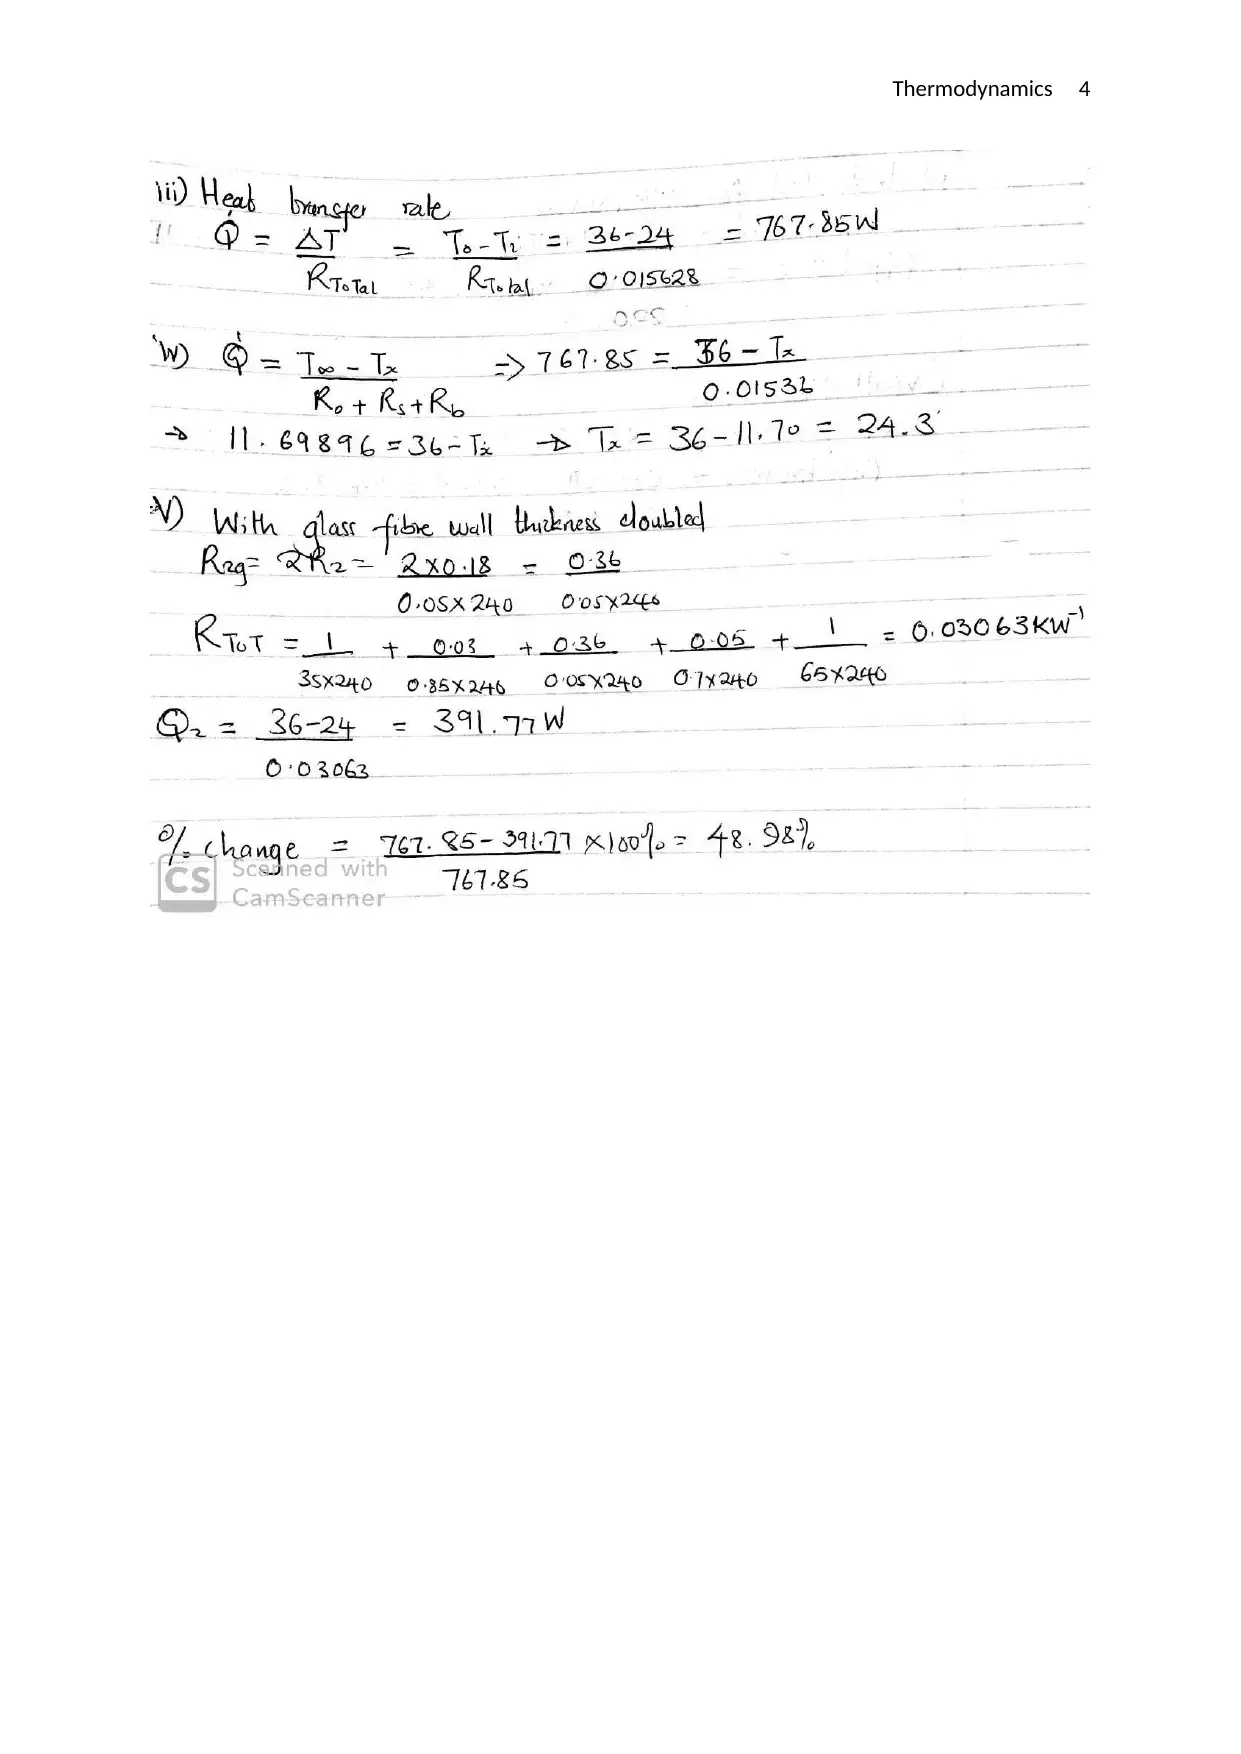 Thermodynamics 4
iii) Heat transfer rate
Q̇ = ΔT / R_Total = T₀ - Tᵢ / R_Total = 36-24 / 0.015628 = 767.85W
iv) Q̇ = T∞ - Tₓ / R₀ + Rₛ + R_b => 767.85 = 36 - Tₓ / 0.01532
→ 11.69896 = 36 - Tₓ → Tₓ = 36 - 11.70 = 24.3
V) With glass fibre wall thickness doubled
R₂g = 2R₂ = 2×0.18 / 0.05×240 = 0.36 / 0.05×240
R_ToT = 1 / 35×240 + 0.03 / 0.85×240 + 0.36 / 0.05×240 + 0.05 / 0.7×240 + 1 / 65×240 = 0.03063KW⁻¹
Q₂ = 36-24 / 0.03063 = 391.77W
% change = 767.85 - 391.77 / 767.85 ×100% = 48.98%
CS Scanned with
CamScanner